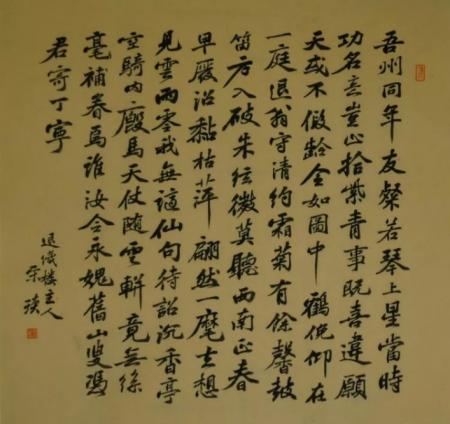 吾州同年友粲若琴上星當時
功名意豈止拾紫青事既喜違願
天或不假齡今如圖中鶴俛仰在
一庭退翁守清約霜菊有餘馨鼓
笛方入破朱絃微莫聽西南正春
旱廢沼黏枯萍翩然一麾去想
見雲雨零我無謫仙句待詔沉香亭
空騎内廄馬天仗隨雲軿竟無絲
毫補眷焉誰汝令永愧舊山叟馮
君寄丁寧
樓主人